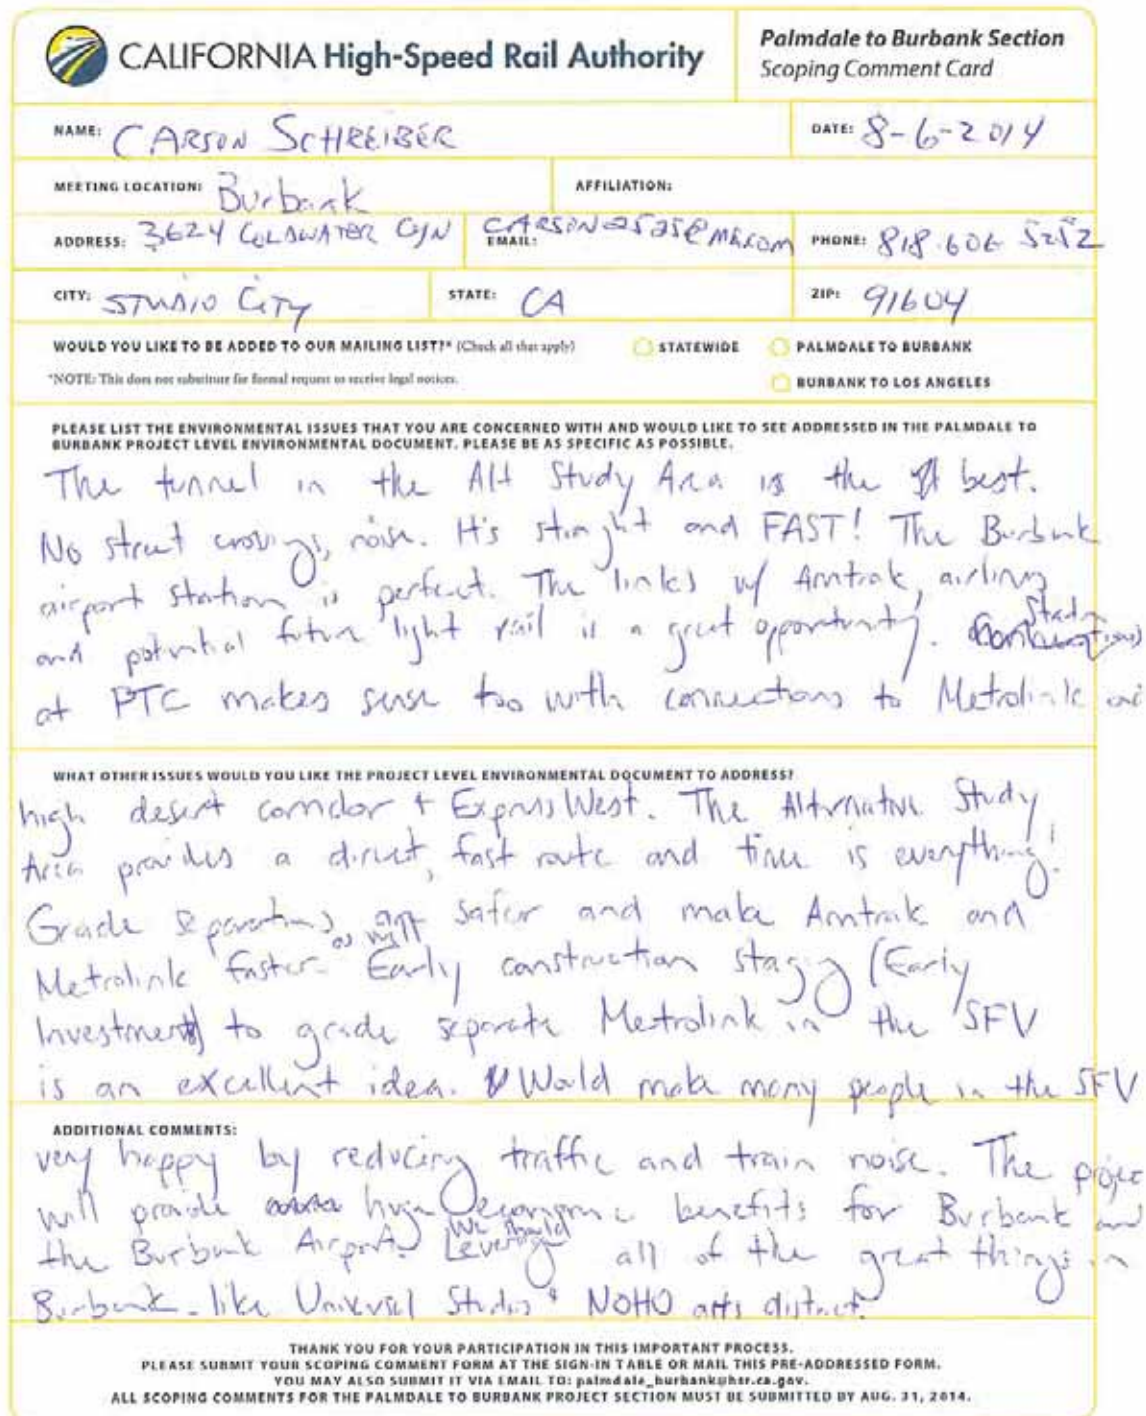 CALIFORNIA High-Speed Rail Authority
Palmdale to Burbank Section
Scoping Comment Card
NAME: CARSON SCHREIBER
DATE: 8-6-2014
MEETING LOCATION: Burbank
AFFILIATION:
ADDRESS: 3624 COLDWATER CYN
EMAIL: CARSON2525@ME.COM
PHONE: 818.606 5252
CITY: STUDIO CITY
STATE: CA
ZIP: 91604
WOULD YOU LIKE TO BE ADDED TO OUR MAILING LIST?* (Check all that apply)
STATEWIDE
PALMDALE TO BURBANK
*NOTE: This does not substitute for formal request to receive legal notices.
BURBANK TO LOS ANGELES
PLEASE LIST THE ENVIRONMENTAL ISSUES THAT YOU ARE CONCERNED WITH AND WOULD LIKE TO SEE ADDRESSED IN THE PALMDALE TO
BURBANK PROJECT LEVEL ENVIRONMENTAL DOCUMENT. PLEASE BE AS SPECIFIC AS POSSIBLE.
The tunnel in the Alt Study Area is the best.
No street crossings, noise. It's straight and FAST! The Burbank
airport station is perfect. The links w/ Amtrak, airlines
and potential future light rail is a great opportunity.
at PTC makes sense too with connections to Metrolink and
WHAT OTHER ISSUES WOULD YOU LIKE THE PROJECT LEVEL ENVIRONMENTAL DOCUMENT TO ADDRESS?
high desert corridor + Express West. The Alternative Study
Area provides a direct, fast route and time is everything!
Grade separations are safer and make Amtrak and
Metrolink faster as well. Early construction staging (Early
Investment) to grade separate Metrolink in the SFV
is an excellent idea. Would make many people in the SFV
ADDITIONAL COMMENTS:
very happy by reducing traffic and train noise. The project
will provide huge economic benefits for Burbank and
the Burbank Airport. We should Leverage all of the great things in
Burbank - like Universal Studios & NOHO arts district.
THANK YOU FOR YOUR PARTICIPATION IN THIS IMPORTANT PROCESS.
PLEASE SUBMIT YOUR SCOPING COMMENT FORM AT THE SIGN-IN TABLE OR MAIL THIS PRE-ADDRESSED FORM.
YOU MAY ALSO SUBMIT IT VIA EMAIL TO: palmdale_burbank@hsr.ca.gov.
ALL SCOPING COMMENTS FOR THE PALMDALE TO BURBANK PROJECT SECTION MUST BE SUBMITTED BY AUG. 31, 2014.